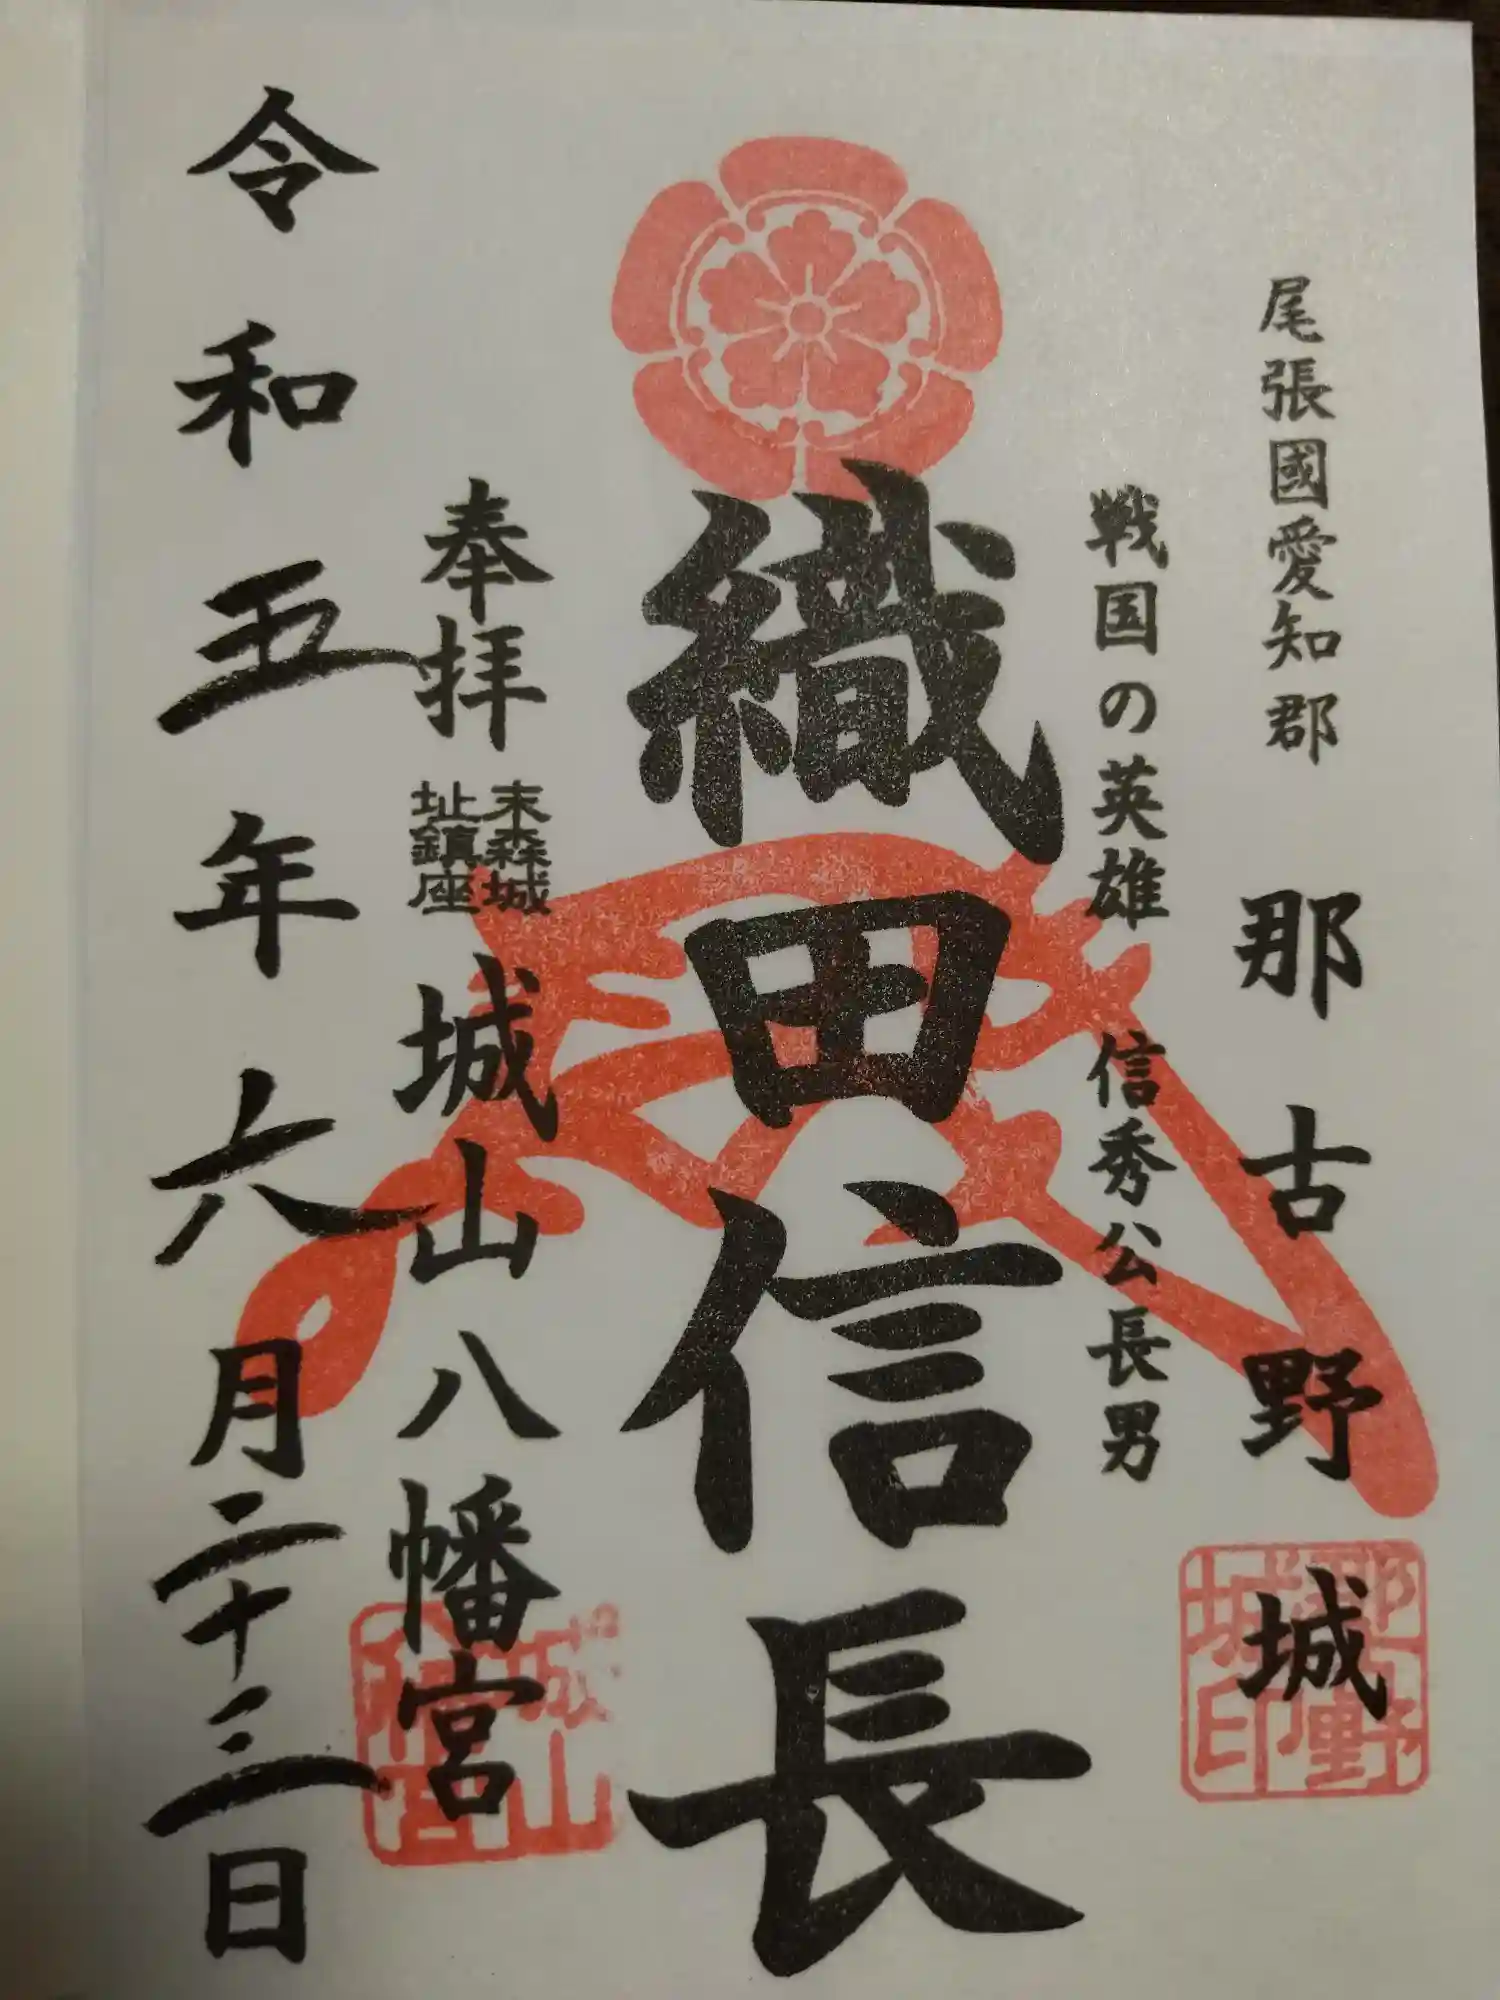 尾張國愛知郡 那古野城
戦国の英雄 信秀公長男
織田信長
奉拝 末森城址鎮座 城山八幡宮
令和五年六月二十三日